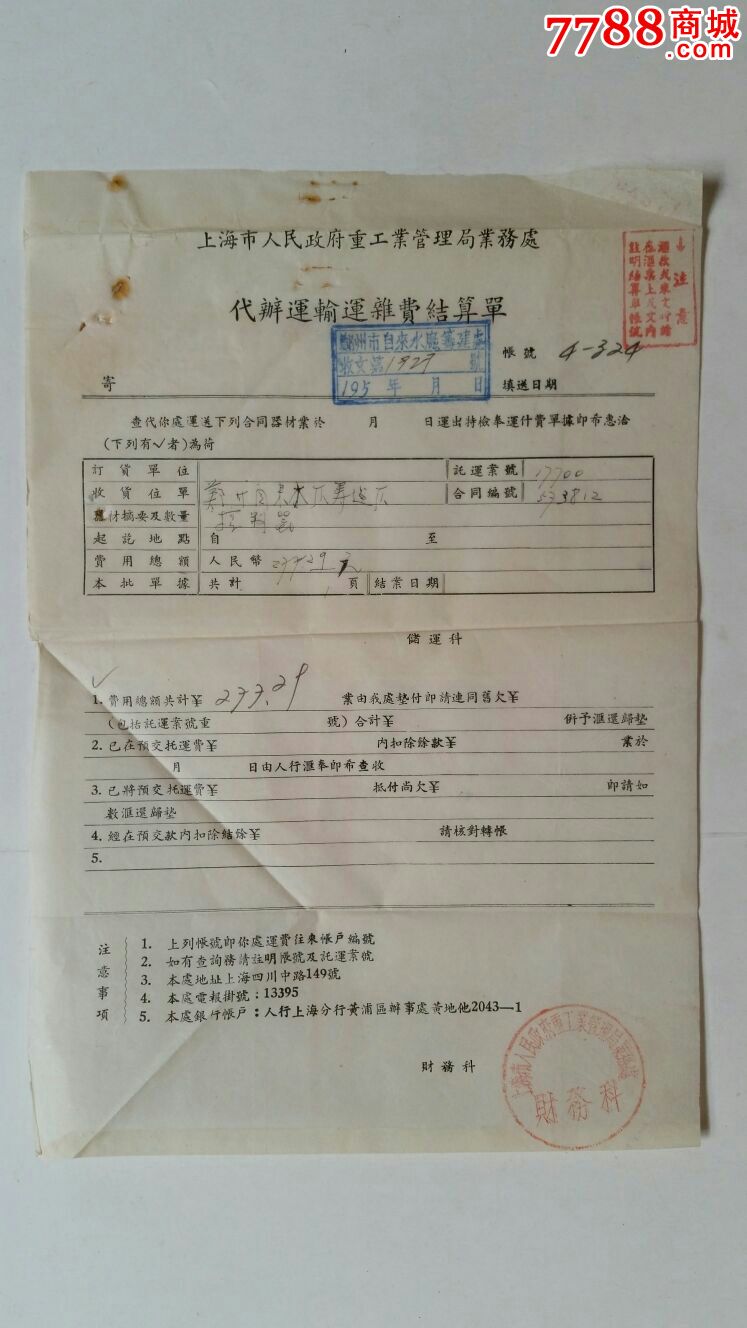 7788商城
.com
上海市人民政府重工業管理局業務處
代辦運輸運雜費結算單
注意
鄭州市自來水廠籌建處
收文第1929號
195 年 月 日
帳號 4-324
寄
填送日期
查代你處運送下列合同器材業於 月 日運出持檢奉運什費單據即布惠洽
(下列有√者)為荷
訂貨單位 託運業號 17700
收貨位單 合同編號 533812
器材摘要及數量
起訖地點 自 至
費用總額 人民幣 元
本批單據 共計 1 頁 結業日期
儲運科
√
1. 費用總額共計¥ 233.29 業由我處墊付即請連同舊欠¥
(包括託運業號重 號)合計¥ 併予滙還歸墊
2. 已在預交托運費¥ 內扣除餘款¥ 業於
月 日由人行滙奉即布查收
3. 已將預交托運費¥ 抵付尚欠¥ 即請如
數滙還歸墊
4. 經在預交款內扣除結餘¥ 請核對轉帳
5.
注意事項
1. 上列帳號即你處運費往來帳戶編號
2. 如有查詢務請註明帳號及託運業號
3. 本處地址上海四川中路149號
4. 本處電報掛號：13395
5. 本處銀行帳戶：人行上海分行黃浦區辦事處黃地他2043—1
財務科
財務科